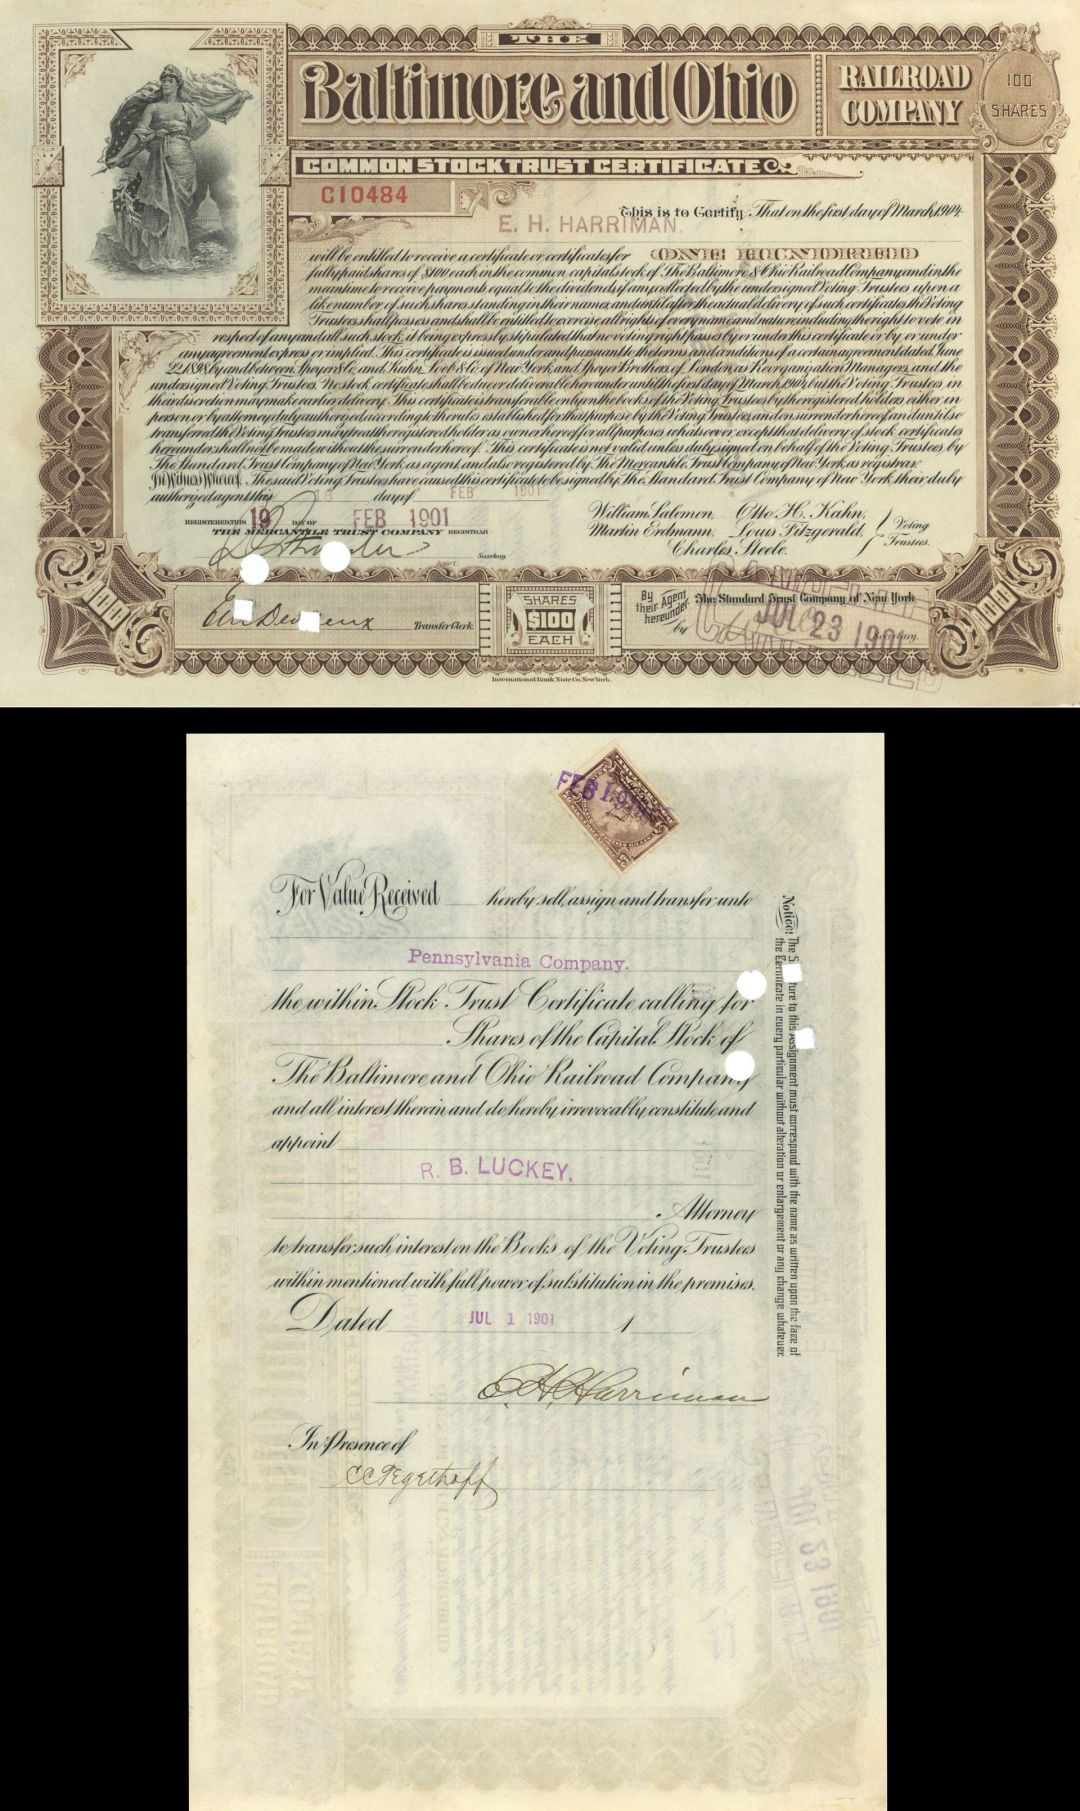 THE
Baltimore and Ohio
RAILROAD
COMPANY
100
SHARES
COMMON STOCK TRUST CERTIFICATE
C10484
This is to Certify That on the first day of March, 1904
E. H. HARRIMAN.
will be entitled to receive a certificate or certificates for ONE HUNDRED
fully paid shares of $100 each in the common capital stock of The Baltimore & Ohio Railroad Company and in the
meantime to receive payments equal to the dividends if any collected by the undersigned Voting Trustees upon a
like number of such shares standing in their names and until after the actual delivery of such certificates the Voting
Trustees shall possess and shall be entitled to exercise all rights of every name and nature including the right to vote in
respect of any and all such stock, it being expressly stipulated that no voting right passes by or under this certificate or by or under
any agreement express or implied. This certificate is issued under and pursuant to the terms and conditions of a certain agreement dated June
22, 1898 by and between Speyer & Co. and Kuhn, Loeb & Co. of New York and Speyer Brothers of London as Reorganization Managers, and the
undersigned Voting Trustees. No stock certificate shall be due or deliverable hereunder until the first day of March, 1904, but the Voting Trustees in
their discretion may make earlier delivery. This certificate is transferable only on the books of the Voting Trustees by the registered holders either in
person or by attorney duly authorized according to the rules established for that purpose by the Voting Trustees, and on surrender hereof and until so
transferred the Voting Trustees may treat the registered holder as owner hereof for all purposes whatsoever, except that delivery of stock certificates
hereunder shall not be made without the surrender hereof. This certificate is not valid unless duly signed on behalf of the Voting Trustees by
The Standard Trust Company of New York as agent, and also registered by The Mercantile Trust Company of New York as registrar.
In Witness Whereof, The said Voting Trustees have caused this certificate to be signed by The Standard Trust Company of New York their duly
authorized agent this 13 day of FEB 1901
William Salomon, Otto H. Kahn,
Martin Erdmann, Louis Fitzgerald,
Charles Steele.
Voting
Trustees.
REGISTERED THIS 19 DAY OF FEB 1901
THE MERCANTILE TRUST COMPANY REGISTRAR
Secretary
ASST.
Transfer Clerk
SHARES
$100
EACH
By
their Agent
hereunder
by
The Standard Trust Company of New York
JUL 23 1901
Secretary
100
100
International Bank Note Co. New York.
FEB
For Value Received hereby sell, assign and transfer unto
Pennsylvania Company.
the within Stock Trust Certificate calling for
Shares of the Capital Stock of
The Baltimore and Ohio Railroad Company
and all interest therein and do hereby irrevocably constitute and
appoint
R. B. LUCKEY.
Attorney
to transfer such interest on the Books of the Voting Trustees
within mentioned with full power of substitution in the premises.
Dated JUL 1 1901 1
E. H. Harriman
In Presence of
C C Tegethoff
Notice! The S ture to this Assignment must correspond with the name as written upon the face of
the Certificate in every particular without alteration or enlargement or any change whatever.